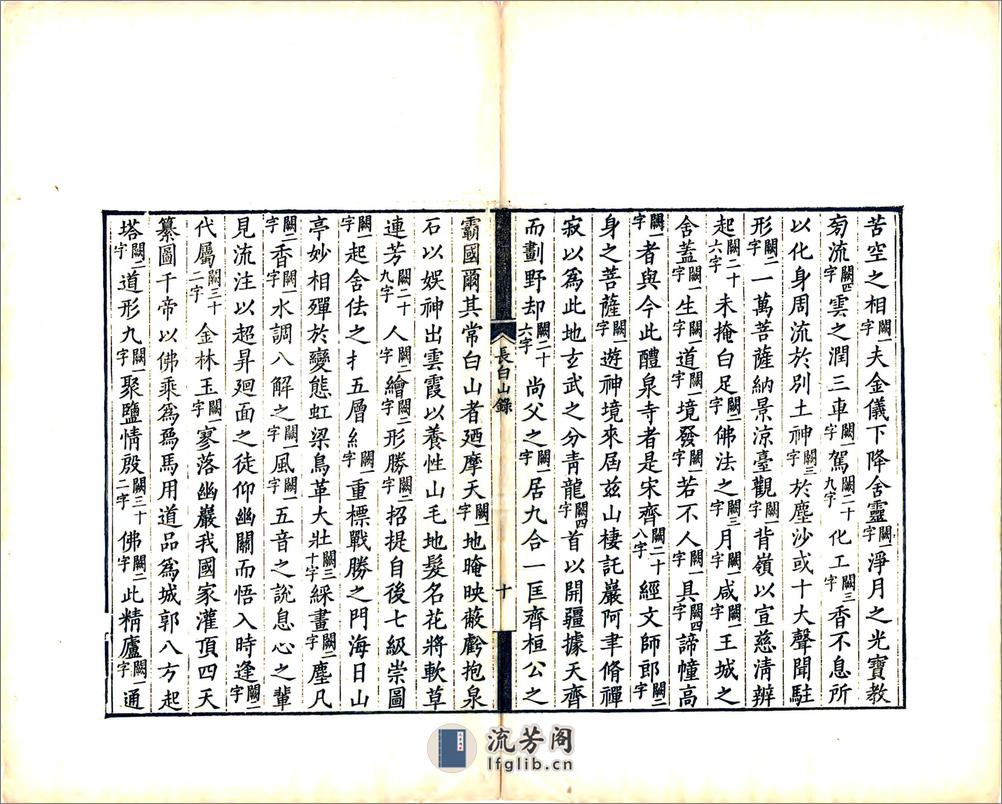 苦空之相闕一字夫金儀下降舍靈闕一字淨月之光寶教
芴流闕四字雲之潤三車闕一字駕闕二十九字化工闕三字香不息所
以化身周流於別土神闕三字於塵沙或十大聲聞駐
形闕二字一萬菩薩納景涼臺觀闕一字背嶺以宣慈清辨
起闕二十六字未掩白足闕二字佛法之闕三字月闕一字咸闕一字王城之
舍蓋闕一字生闕一字道闕一字境發闕一字若不人闕一字具闕四字諦幢高
闕一字者與今此醴泉寺者是宋齊闕二十八字經文師郎闕二字
身之菩薩闕一字遊神境來屆茲山棲託巖阿聿脩禪
寂以為此地玄武之分青龍闕四字首以開疆據天齊
而劃野却闕二十六字尚父之闕一字居九合一匡齊桓公之
長白山錄
十
霸國爾其常白山者迺摩天闕一字地晻映蔽虧抱泉
石以娛神出雲霞以養性山毛地髮名花將軟草
連芳闕二十九字人闕一字繪闕二字形勝闕二字招提自後七級崇圖
闕一字起舍佉之扌五層糹闕一字重標戰勝之門海日山
亭妙相殫於變態虹梁鳥革大壯闕三十字綵畫闕二字塵凡
闕二字香闕一字水調八解之闕一字風闕一字五音之說息心之輩
見流注以超昇廻面之徒仰幽關而悟入時逢闕二字
代屬闕三十二字金林玉闕一字寥落幽巖我國家灌頂四天
纂圖千帝以佛乘為爲馬用道品為城郭八方起
塔闕二字道形九闕一字聚鹽情殷闕三十二字佛闕二字此精廬闕一字通
流芳阁
lfglib.cn